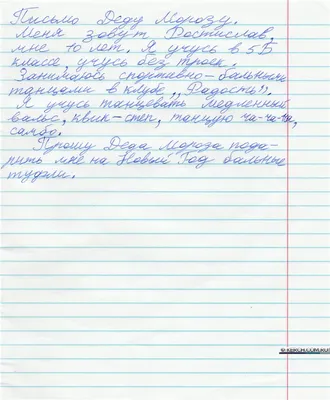 Письмо Деду Морозу.
Меня зовут Ростислав,
мне 10 лет. Я учусь в 5Б
классе, учусь без троек.
Занимаюсь спортивно-бальными
танцами в клубе „Радость".
Я учусь танцевать медленный
вальс, квик-степ, танцую ча-ча-ча,
самбо.
Прошу Деда Мороза пода-
рить мне на Новый Год бальные
туфли.
© KERCH.COM.RU